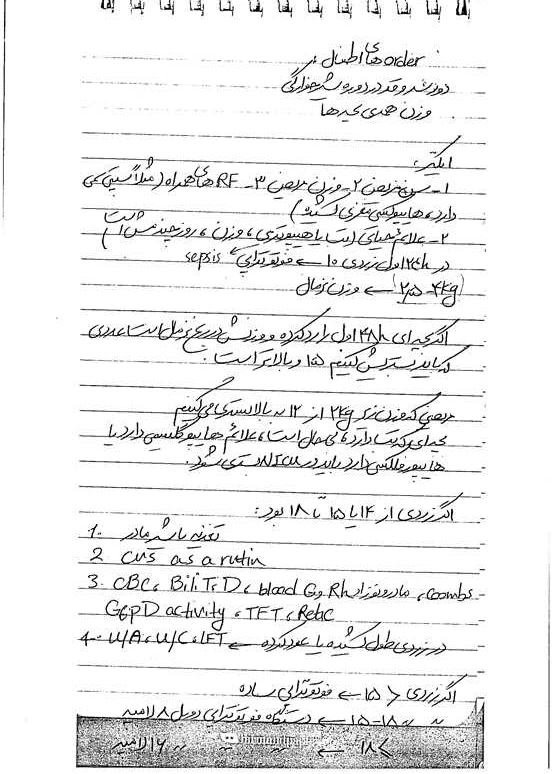 order های اطفال :
دور سر و قد در دوره شیرخوارگی
وزن همه ی بچه ها
ایکتر:
۱- سن مریض ۲- وزن مریض ۳- RF های همراه (مثلا آسیب
دارد، هایپوکسی مغزی
۲- علائم حیاتی وزن، روز چندمش است
در ۲۴h اول زردی ۱۰ ← فوتوتراپی sepsis
(۲,۵-۴kg) ← وزن نرمال
اگر بچه ای ۴۸h اول را رد کرده و وزنش در رنج نرمال است عددی
که باید بستریش کنیم ۱۵ و بالاتر است.
مریضی که وزن زیر ۲kg از ۱۲ به بالا بستری می کنیم
بچه ای که تب دارد، بی حال است، علائم هایپوگلیسمی دارد یا
دارد باید در NICU بستری شود.
اگر زردی از ۱۴ یا ۱۵ تا ۱۸ بود:
1. تغذیه با شیر مادر
2 cvs as a rutin
3. CBC، Bili T,D، blood G, Rh مادر و نوزاد، Coombs
G6pD activity، TFT، Retic
4- U/A، U/C، LFT ← در زردی طول کشیده یا عود کرده
اگر زردی < ۱۵ ← فوتوتراپی ساده
" " ۱۵-۱۸ ← دستگاه فوتوتراپی دوبل ۸ لامپه
>۱۸ ← " " " ۱۶ لامپه